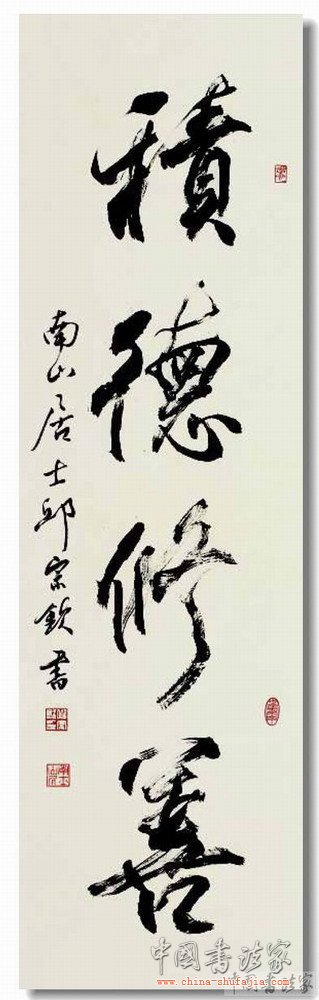 積德修善
南山居士邱宗欽書
中国书法家
www.china-shufajia.com
中国书法家